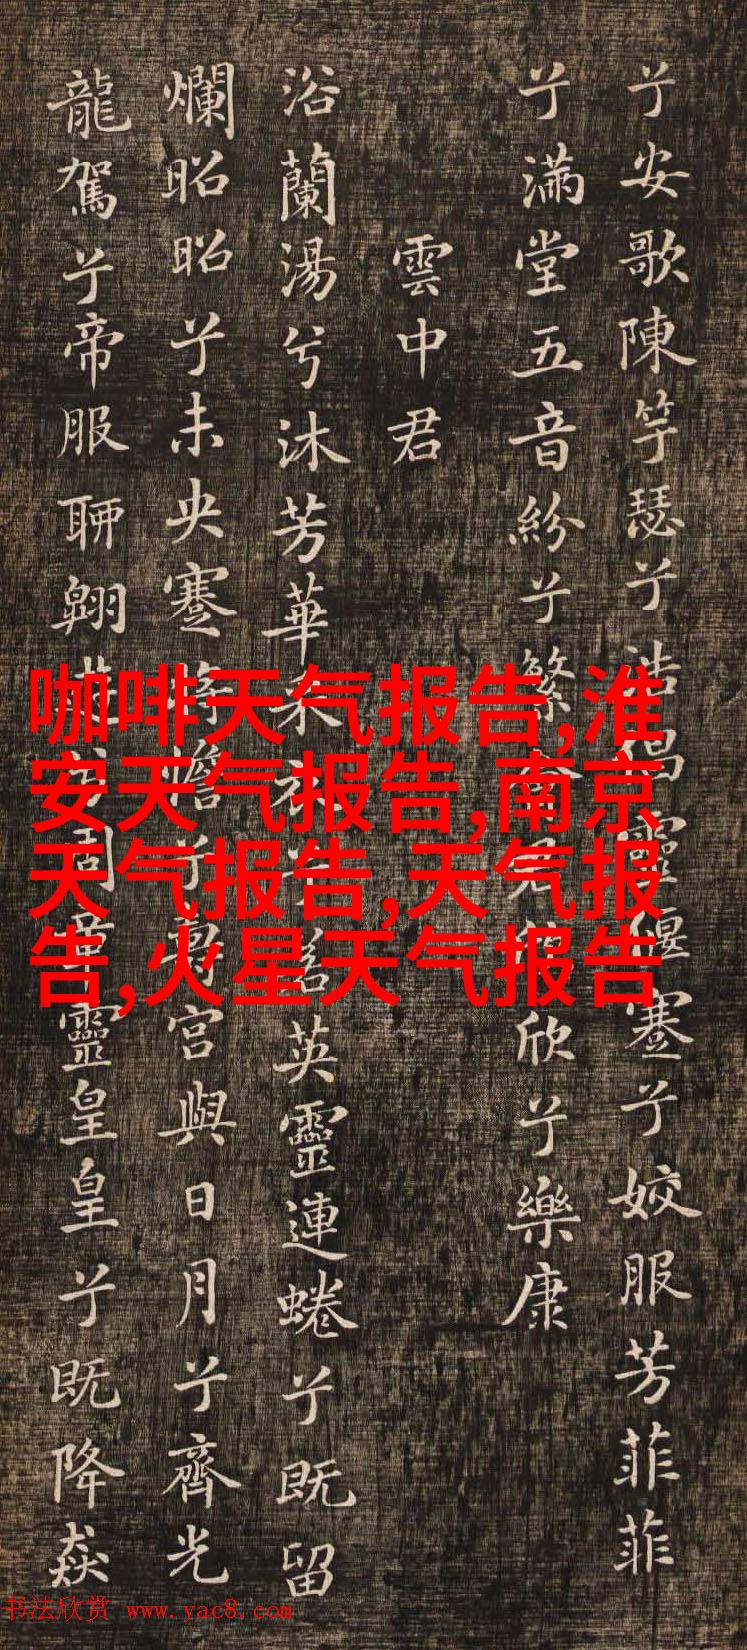 兮安歌陳竽瑟兮浩倡靈偃蹇兮姣服芳菲菲
兮滿堂五音紛兮繁會君欣欣兮樂康
雲中君
浴蘭湯兮沐芳華采衣兮若英靈連蜷兮既留
爛昭昭兮未央蹇將憺兮壽宮與日月兮齊光
龍駕兮帝服聊翱遊兮周章靈皇皇兮既降猋
咖啡天气报告,淮
安天气报告,南京
天气报告,天气报
告,火星天气报告
书法欣赏 www.yac8.com